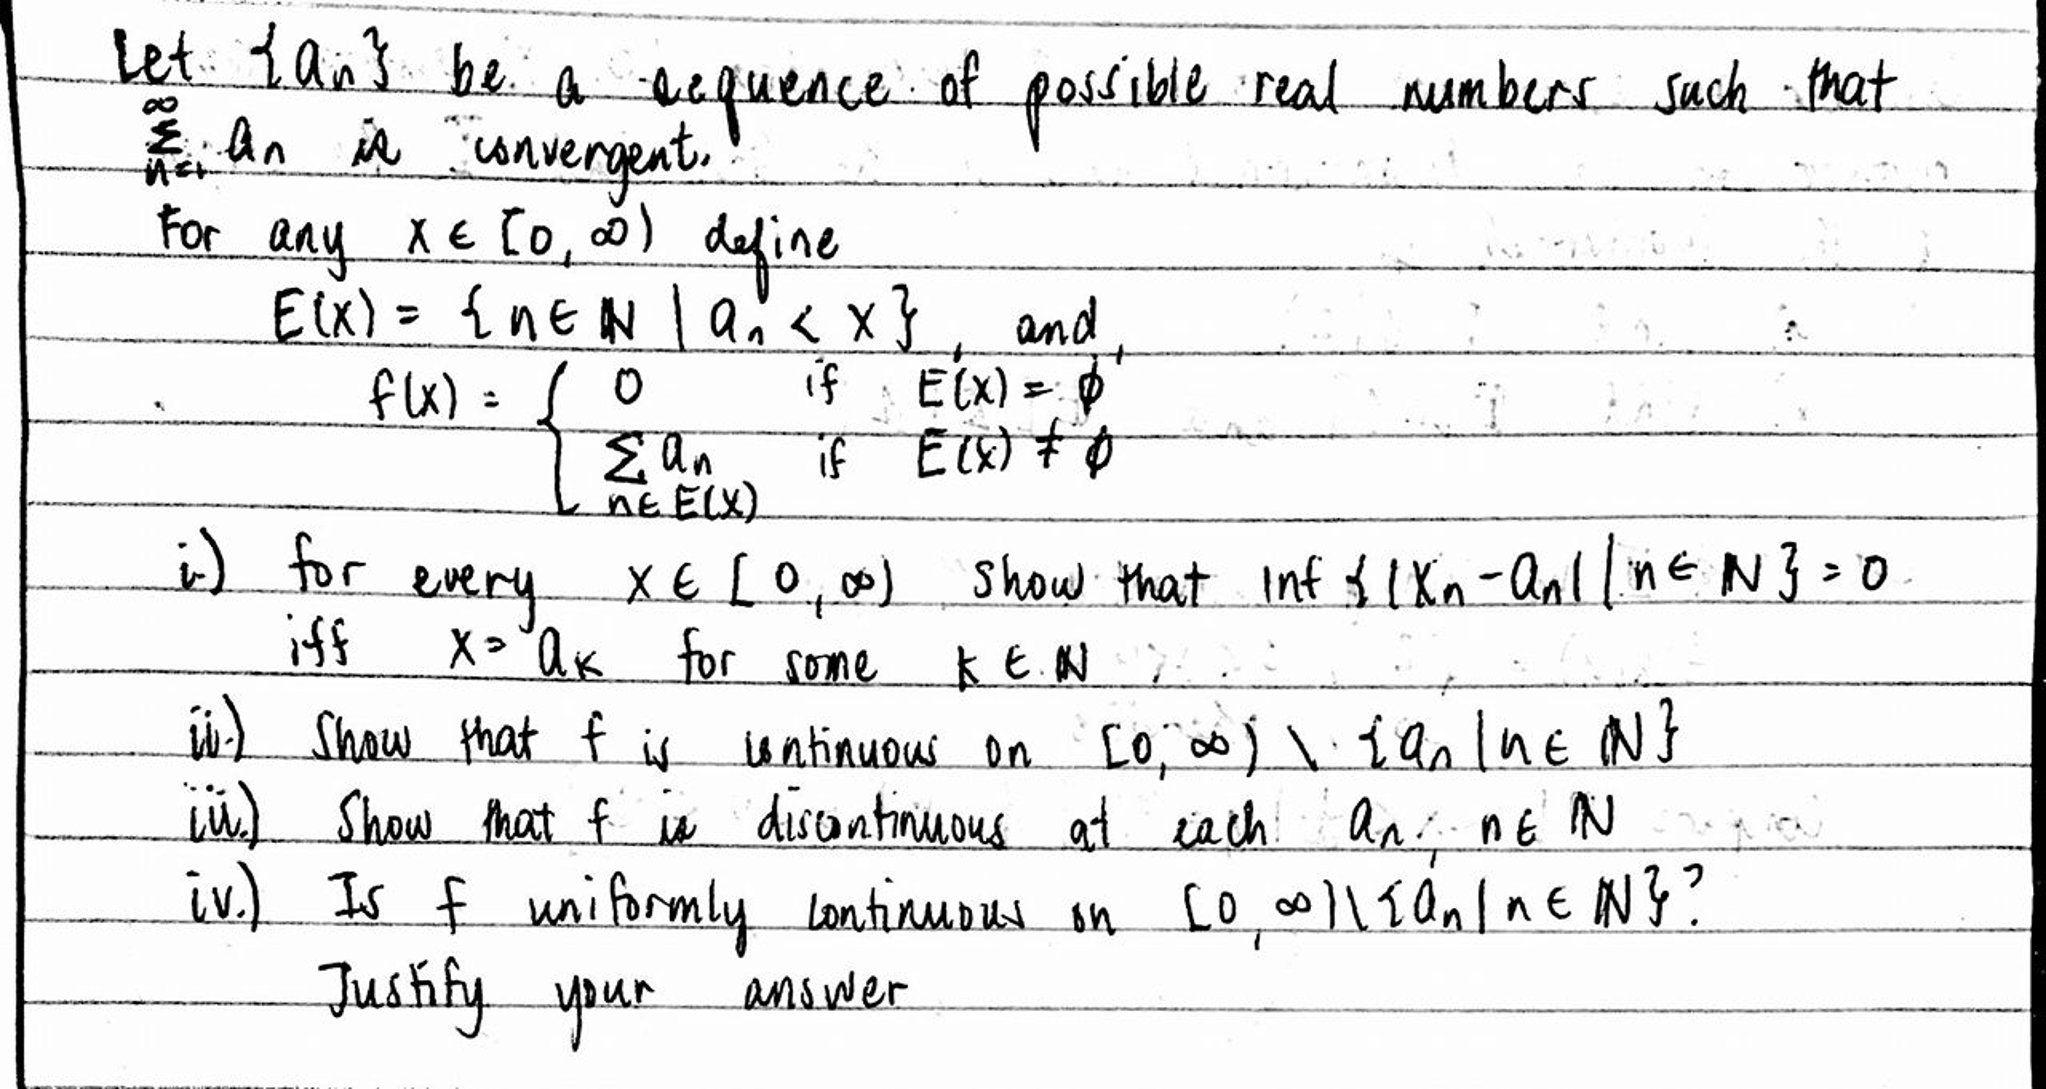 Let {an} be a sequence of possible real numbers such that
∞
Σ an is convergent.
n=1
For any x ∈ [0, ∞) define
E(x) = {n ∈ ℕ | an < x}, and,
f(x) = { 0 if E(x) = ϕ
Σ an if E(x) ≠ ϕ
n∈E(x)
i.) for every x ∈ [0, ∞) show that inf {|xn - an| | n ∈ ℕ} = 0
iff x = ak for some k ∈ ℕ
ii.) Show that f is continuous on [0, ∞) \ {an | n ∈ ℕ}
iii.) Show that f is discontinuous at each an, n ∈ ℕ
iv.) Is f uniformly continuous on [0, ∞) \ {an | n ∈ ℕ}?
Justify your answer